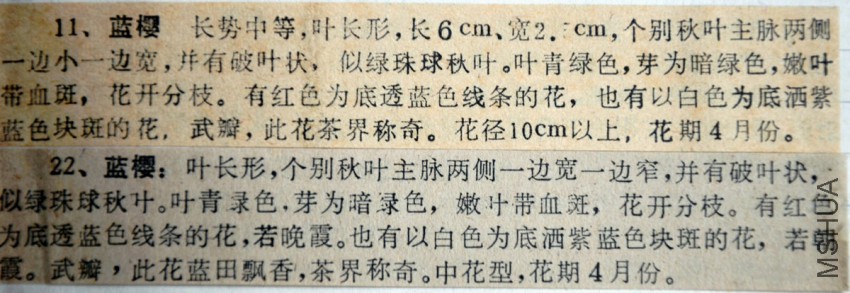 11、蓝樱 长势中等,叶长形,长6cm、宽2. cm,个别秋叶主脉两侧
一边小一边宽,并有破叶状, 似绿珠球秋叶。叶青绿色,芽为暗绿色,嫩叶
带血斑, 花开分枝。有红色为底透蓝色线条的花, 也有以白色为底洒紫
蓝色块斑的花, 武瓣,此花茶界称奇。花径10cm以上, 花期4月份。
22、蓝樱: 叶长形,个别秋叶主脉两侧一边宽一边窄,并有破叶状,
似绿珠球秋叶。叶青绿色.芽为暗绿色, 嫩叶带血斑, 花开分枝。有红色
为底透蓝色线条的花,若晚霞。也有以白色为底洒紫蓝色块斑的花, 若朝
霞。武瓣,此花蓝田飘香,茶界称奇。中花型,花期4月份。
MSHUA